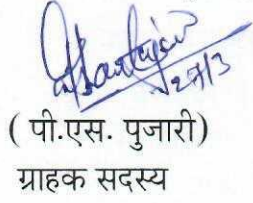 27/3
( पी.एस. पुजारी)
ग्राहक सदस्य